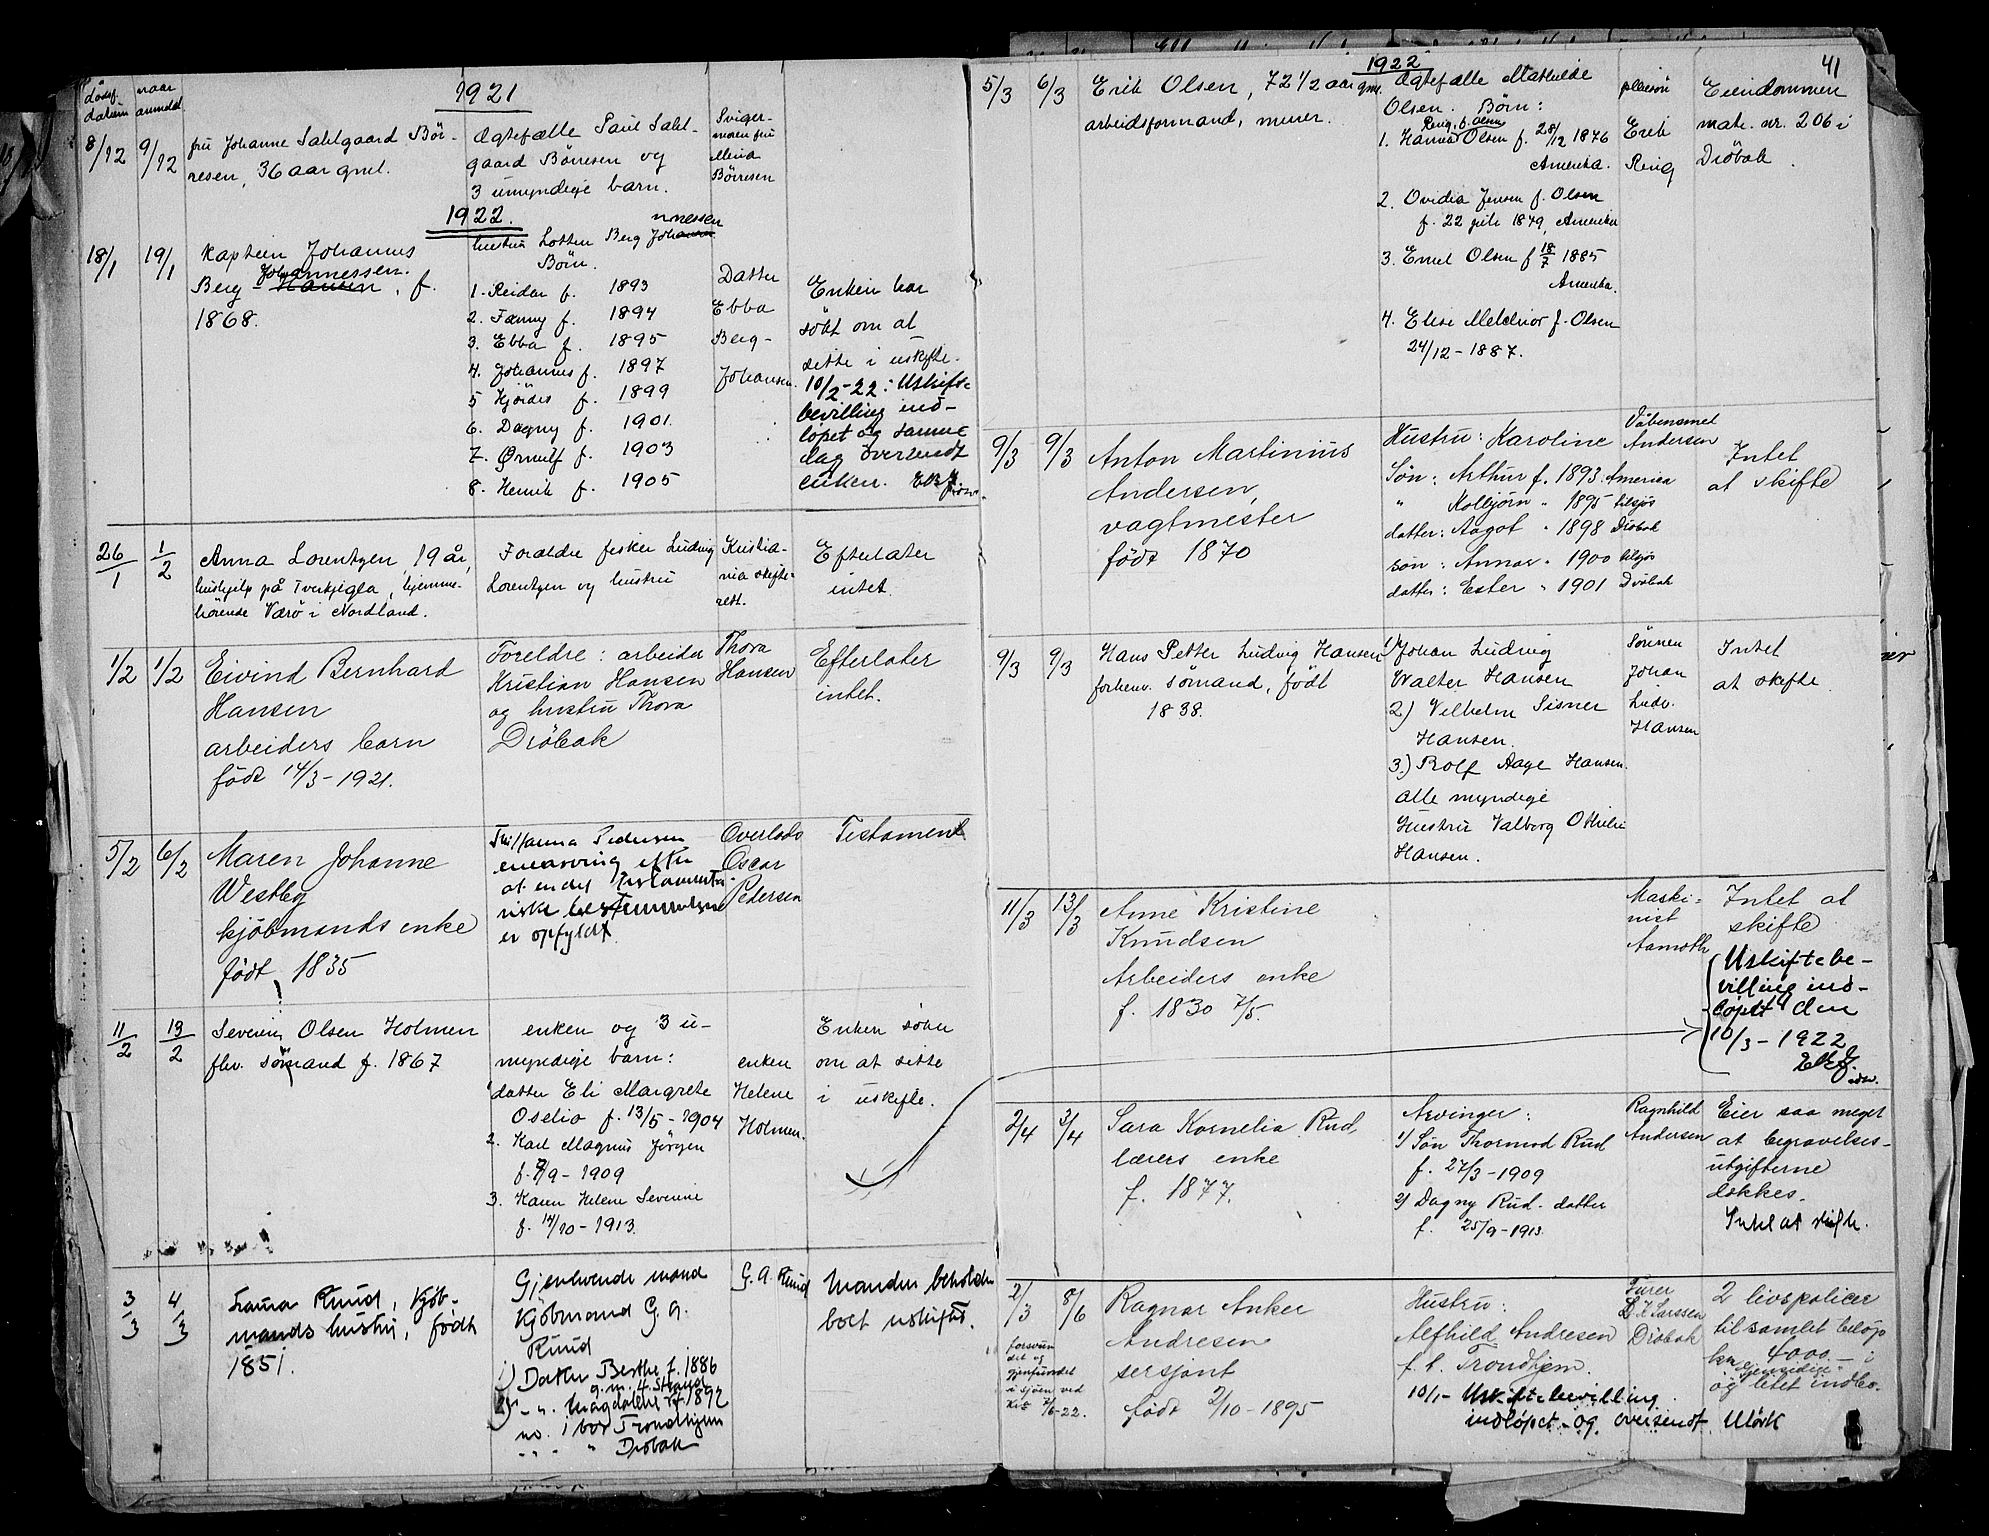 dødsf. datum
naar anmeldt
1921
8/12 9/12
fru Johanne Sahlgaard Bör-
resen, 36 aar gml.
Ægtefælle Paul Sahl-
gaard Börresen og
3 umyndige barn.
Sviger-
moren fru
Mina
Börresen
1922.
18/1 19/1
Kaptein Johannes
Johannessen.
Berg - Hansen, f.
1868.
nnessen
hustru Lotten Berg Johansen
Börn.
1. Reidar f. 1893
2. Fanny f. 1894
3. Ebba f. 1895
4. Johannes f. 1897
5 Hjördis f. 1899
6. Dagny f. 1901.
7. Ørnulf f. 1903
8. Henrik f. 1905
Datter
Ebba
Berg-
Johansen.
Enken har
sökt om at
sitte i uskifte.
10/2-22: Uskifte-
bevilling ind-
löpet og samme
dag oversendt
enken.
26/1 1/2
Anna Lorentzen, 19 år,
hushjelp på Tverkjegla, hjemme-
hörende Værö i Nordland.
Foreldre fisker Ludvig
Lorentzen og hustru
Kristia-
nia skifte-
rett.
Efterlater
intet.
1/2 1/2
Eivind Bernhard
Hansen
arbeiders barn
födt 14/3-1921.
Foreldre: arbeider
Kristian Hansen
og hustru Thora
Dröbak
Thora
Hansen
Efterlater
intet.
5/2 6/2
Maren Johanne
Westby
kjöbmands enke
födt 1835
Hanna Pedersen
enearving efter
at endel testamenta-
riske bestemmelser
er opfyldt.
Overlods
Oscar
Pedersen
Testament
11/2 13/2
Severin Olsen Holmen
fhv. sömand f. 1867
enken og 3 u-
myndige barn:
datter Eli Margrete
Oselio f. 13/5-1904
2. Karl Magnus Jörgen
f. 7/9-1909
3. Karen Helene Severine
f. 14/10-1913.
enken
Helene
Holmen.
Enken söker
om at sitte
i uskifte.
3/3 4/3
Knud, Kjöb-
mands hustru, födt
1851.
Gjenlevende mand
Kjöbmand G. A.
Knud
1) Datter Berthe f. 1886
g.m. Strand
2) -"- Magdalene f. 1892
no. 1 bor Trondhjem
" Dröbak
G. A. Knud
Manden beholder
boet uskiftet.
1922
41
5/3 6/3
Erik Olsen, 72 1/2 aar gml.
arbeidsformand, murer.
Ægtefælle Mathilde
Olsen. Börn:
Ring, f. Olsen
1. Hanna Olsen f. 28/12 1876
Amerika.
2. Ovidia Jensen f. Olsen
f. 22 juli 1879, Amerika
3. Emil Olsen f 18/7 1885
Amerika.
4. Elise Melchior f. Olsen
24/12-1887.
pleiesön
Erik
Ring
Eiendommen
matr. nr. 206 i
Dröbak.
9/3 9/3
Anton Martinius
Andersen,
vagtmester
födt 1870
Hustru: Karoline
Søn: Arthur f. 1893. Amerika
" Kolbjörn " 1895 tilsjös
datter: Aagot " 1898 Dröbak
søn: Annar " 1900 tilsjös
datter: Ester " 1901 Dröbak
Våbensmed
Andersen
Intet
at skifte
9/3 9/3
Hans Petter Ludvig Hansen
forhenv. sömand, födt
1838.
1) Johan Ludvig
Walter Hansen
2) Vilhelm Sisner
Hansen.
3.) Rolf Aage Hansen.
alle myndige
Hustru Valborg Othilie
Hansen.
Sönnen
Johan
Ludv.
Hansen
Intet
at skifte.
11/3 13/3
Anne Kristine
Knudsen
Arbeiders enke
f. 1830 7/5.
Maski-
nist
Aamoth
Intet at
skifte
Uskiftebe-
villing ind-
löpet den
10/3-1922
2/4 3/4
Sara Kornelia Rud,
lærers enke
f. 1877.
Arvinger:
1) Søn Thormod Rud
f. 27/3-1909
2) Dagny Rud. datter
f. 25/9-1913.
Ragnhild
Andersen
Eier saa meget
at begravelses-
utgifterne
dækkes.
Intet at skifte.
2/3 8/6
forsvun
det og
gjenfundet
i sjöen ved
7/6-22.
Ragnar Anker
Andresen
sersjant
födt 2/10-1895
Hustru:
Alfhild Andresen
f. h. Trondhjem.
10/1- Uskiftebevilling
indlöpet - og oversendt
Furer
Larssen
Dröbak
2 livspolicer
til samlet belöp
kr. 4000.- i
"Gjensidige"
og litet indbo.